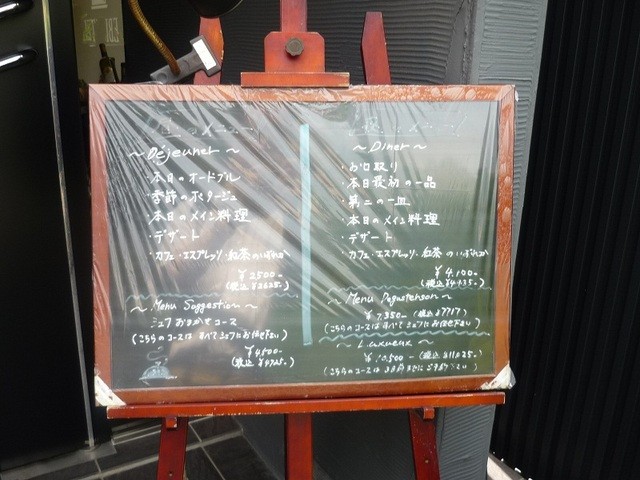 昼のメニュー
~ Déjeuner ~
・本日のオードブル
・季節のポタージュ
・本日のメイン料理
・デザート
・カフェ・エスプレッソ・紅茶のいずれか
¥2500-
(税込 ¥2625-)
~ Menu Suggestion ~
シェフおまかせコース
(こちらのコースはすべてシェフにお任せ下さい)
¥4500-
(税込 ¥4725-)
メニュー
~ Dîner ~
・お口取り
・本日最初の一品
・第二の一皿
・本日のメイン料理
・デザート
・カフェ・エスプレッソ・紅茶のいずれか
¥4.100-
~ Menu Degustenson ~
¥7.350- (税込 ¥7717)
(こちらのコースはすべてシェフにお任せ下さい)
~ Luxueux ~
(こちらのコースは3日前までにご予約下さい)